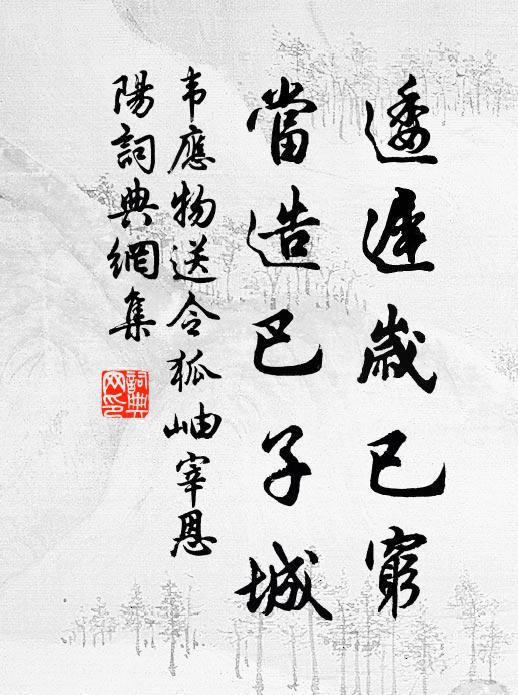 逶遲歲已窮
當造巴子城
韋應物送令狐岫宰恩
陽詞典網集
詞典
网印